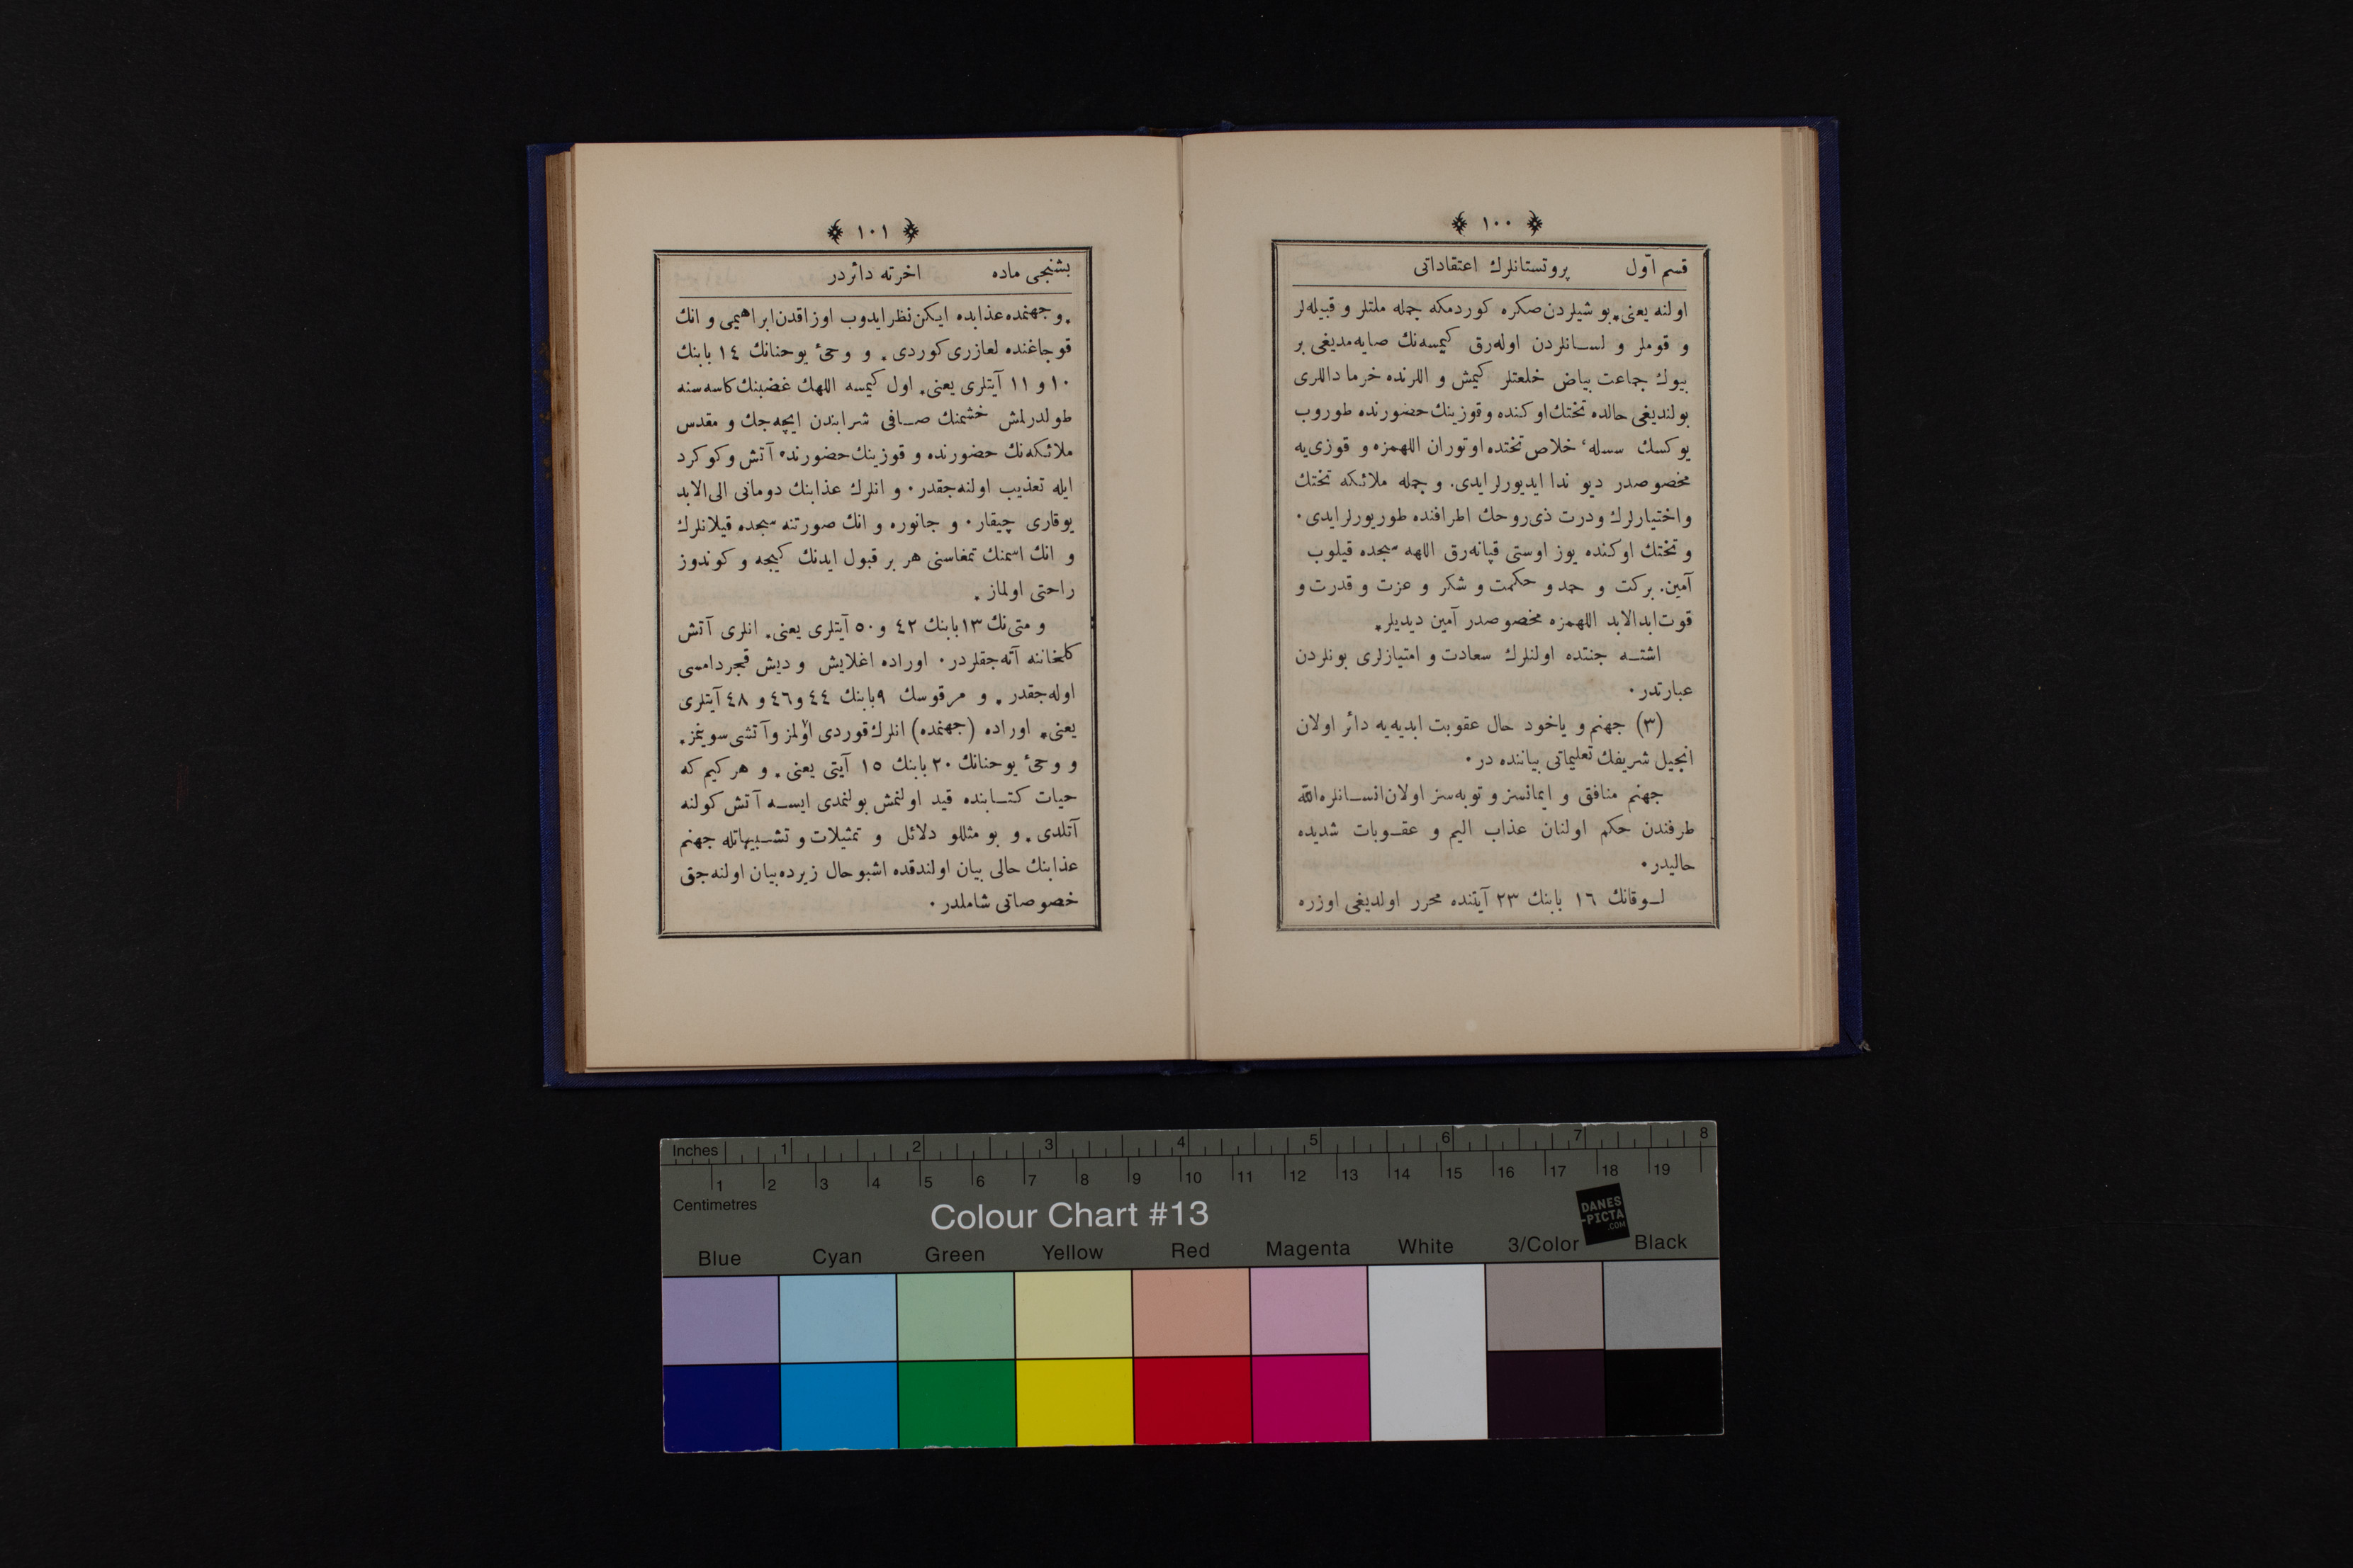 ﴿ ١٠٠ ﴾
قسم اوّل پروتستانلرك اعتقاداتى
اولنه يعنى٭ بو شيلردن صكره كوردمكه جمله ملتلر و قبيله‌لر
و قوملر و لسانلردن اوله‌رق كيمسه‌نك صايه‌مديغى بر
بيوك جماعت بياض خلعتلر كيمش و اللرنده خرما داللرى
بولنديغى حالده تختك اوكنده و قوزينك حضورنده طوروب
يوكسك سسله‌ء خلاص تختده اوتوران اللهمزه و قوزى‌يه
مخصوصدر ديو ندا ايديورلر ايدى. و جمله ملائكه تختك
و اختيارلرك و درت ذى‌روحك اطرافنده طوريورلر ايدى.
و تختك اوكنده يوز اوستى قپانه‌رق اللهه سجده قيلوب
آمين. بركت و حمد و حكمت و شكر و عزت و قدرت و
قوت ابدالابد اللهمزه مخصوصدر آمين ديديلر٭
اشته جنتده اولنلرك سعادت و امتيازلرى بونلردن
عبارتدر.
(٣) جهنم و ياخود حال عقوبت ابديه‌يه دائر اولان
انجيل شريفك تعليماتى بياننده در.
جهنم منافق و ايمانسز و توبه‌سز اولان انسانلره الله
طرفندن حكم اولنان عذاب اليم و عقوبات شديده
حاليدر.
لوقانك ١٦ بابنك ٢٣ آيتنده محرر اولديغى اوزره
﴿ ١٠١ ﴾
بشنجى ماده اخرته دائردر
٭و جهنمده عذابده ايكن نظر ايدوب اوزاقدن ابراهيمى و انك
قوجاغنده لعازرى كوردى٭ و وحئ يوحنانك ١٤ بابنك
١٠ و ١١ آيتلرى يعنى٭ اول كيمسه اللهك غضبنك كاسه‌سنه
طولدرلمش خشمنك صافى شرابندن ايچه‌جك و مقدس
ملائكه‌نك حضورنده و قوزينك حضورنده آتش و كوكرد
ايله تعذيب اولنه‌جقدر. و انلرك عذابنك دومانى الى‌الابد
يوقارى چيقار. و جانوره و انك صورتنه سجده قيلانلرك
و انك اسمنك تمغاسنى هر بر قبول ايدنك كيجه و كوندوز
راحتى اولماز٭
و متى‌نك ١٣ بابنك ٤٢ و ٥٠ آيتلرى يعنى٭ انلرى آتش
كلخاننه آته‌جقلردر. اوراده اغلايش و ديش قجرداممى
اوله‌جقدر٭ و مرقوسك ٩ بابنك ٤٤ و ٤٦ و ٤٨ آيتلرى
يعنى٭ اوراده (جهنمده) انلرك قوردى اولمز و آتشى سوينمز٭
و وحئ يوحنانك ٢٠ بابنك ١٥ آيتى يعنى٭ و هر كيم كه
حيات كتابنده قيد اولنمش بولنمدى ايسه آتش كولنه
آتلدى٭ و بو مثللو دلائل و تمثيلات و تشبيهاتله جهنم
عذابنك حالى بيان اولندقده اشبو حال زيرده بيان اولنه‌جق
خصوصاتى شاملدر.
Inches 1 2 3 4 5 6 7 8
1 2 3 4 5 6 7 8 9 10 11 12 13 14 15 16 17 18 19
Centimetres
Colour Chart #13
DANES
-PICTA
.COM
Blue Cyan Green Yellow Red Magenta White 3/Color Black